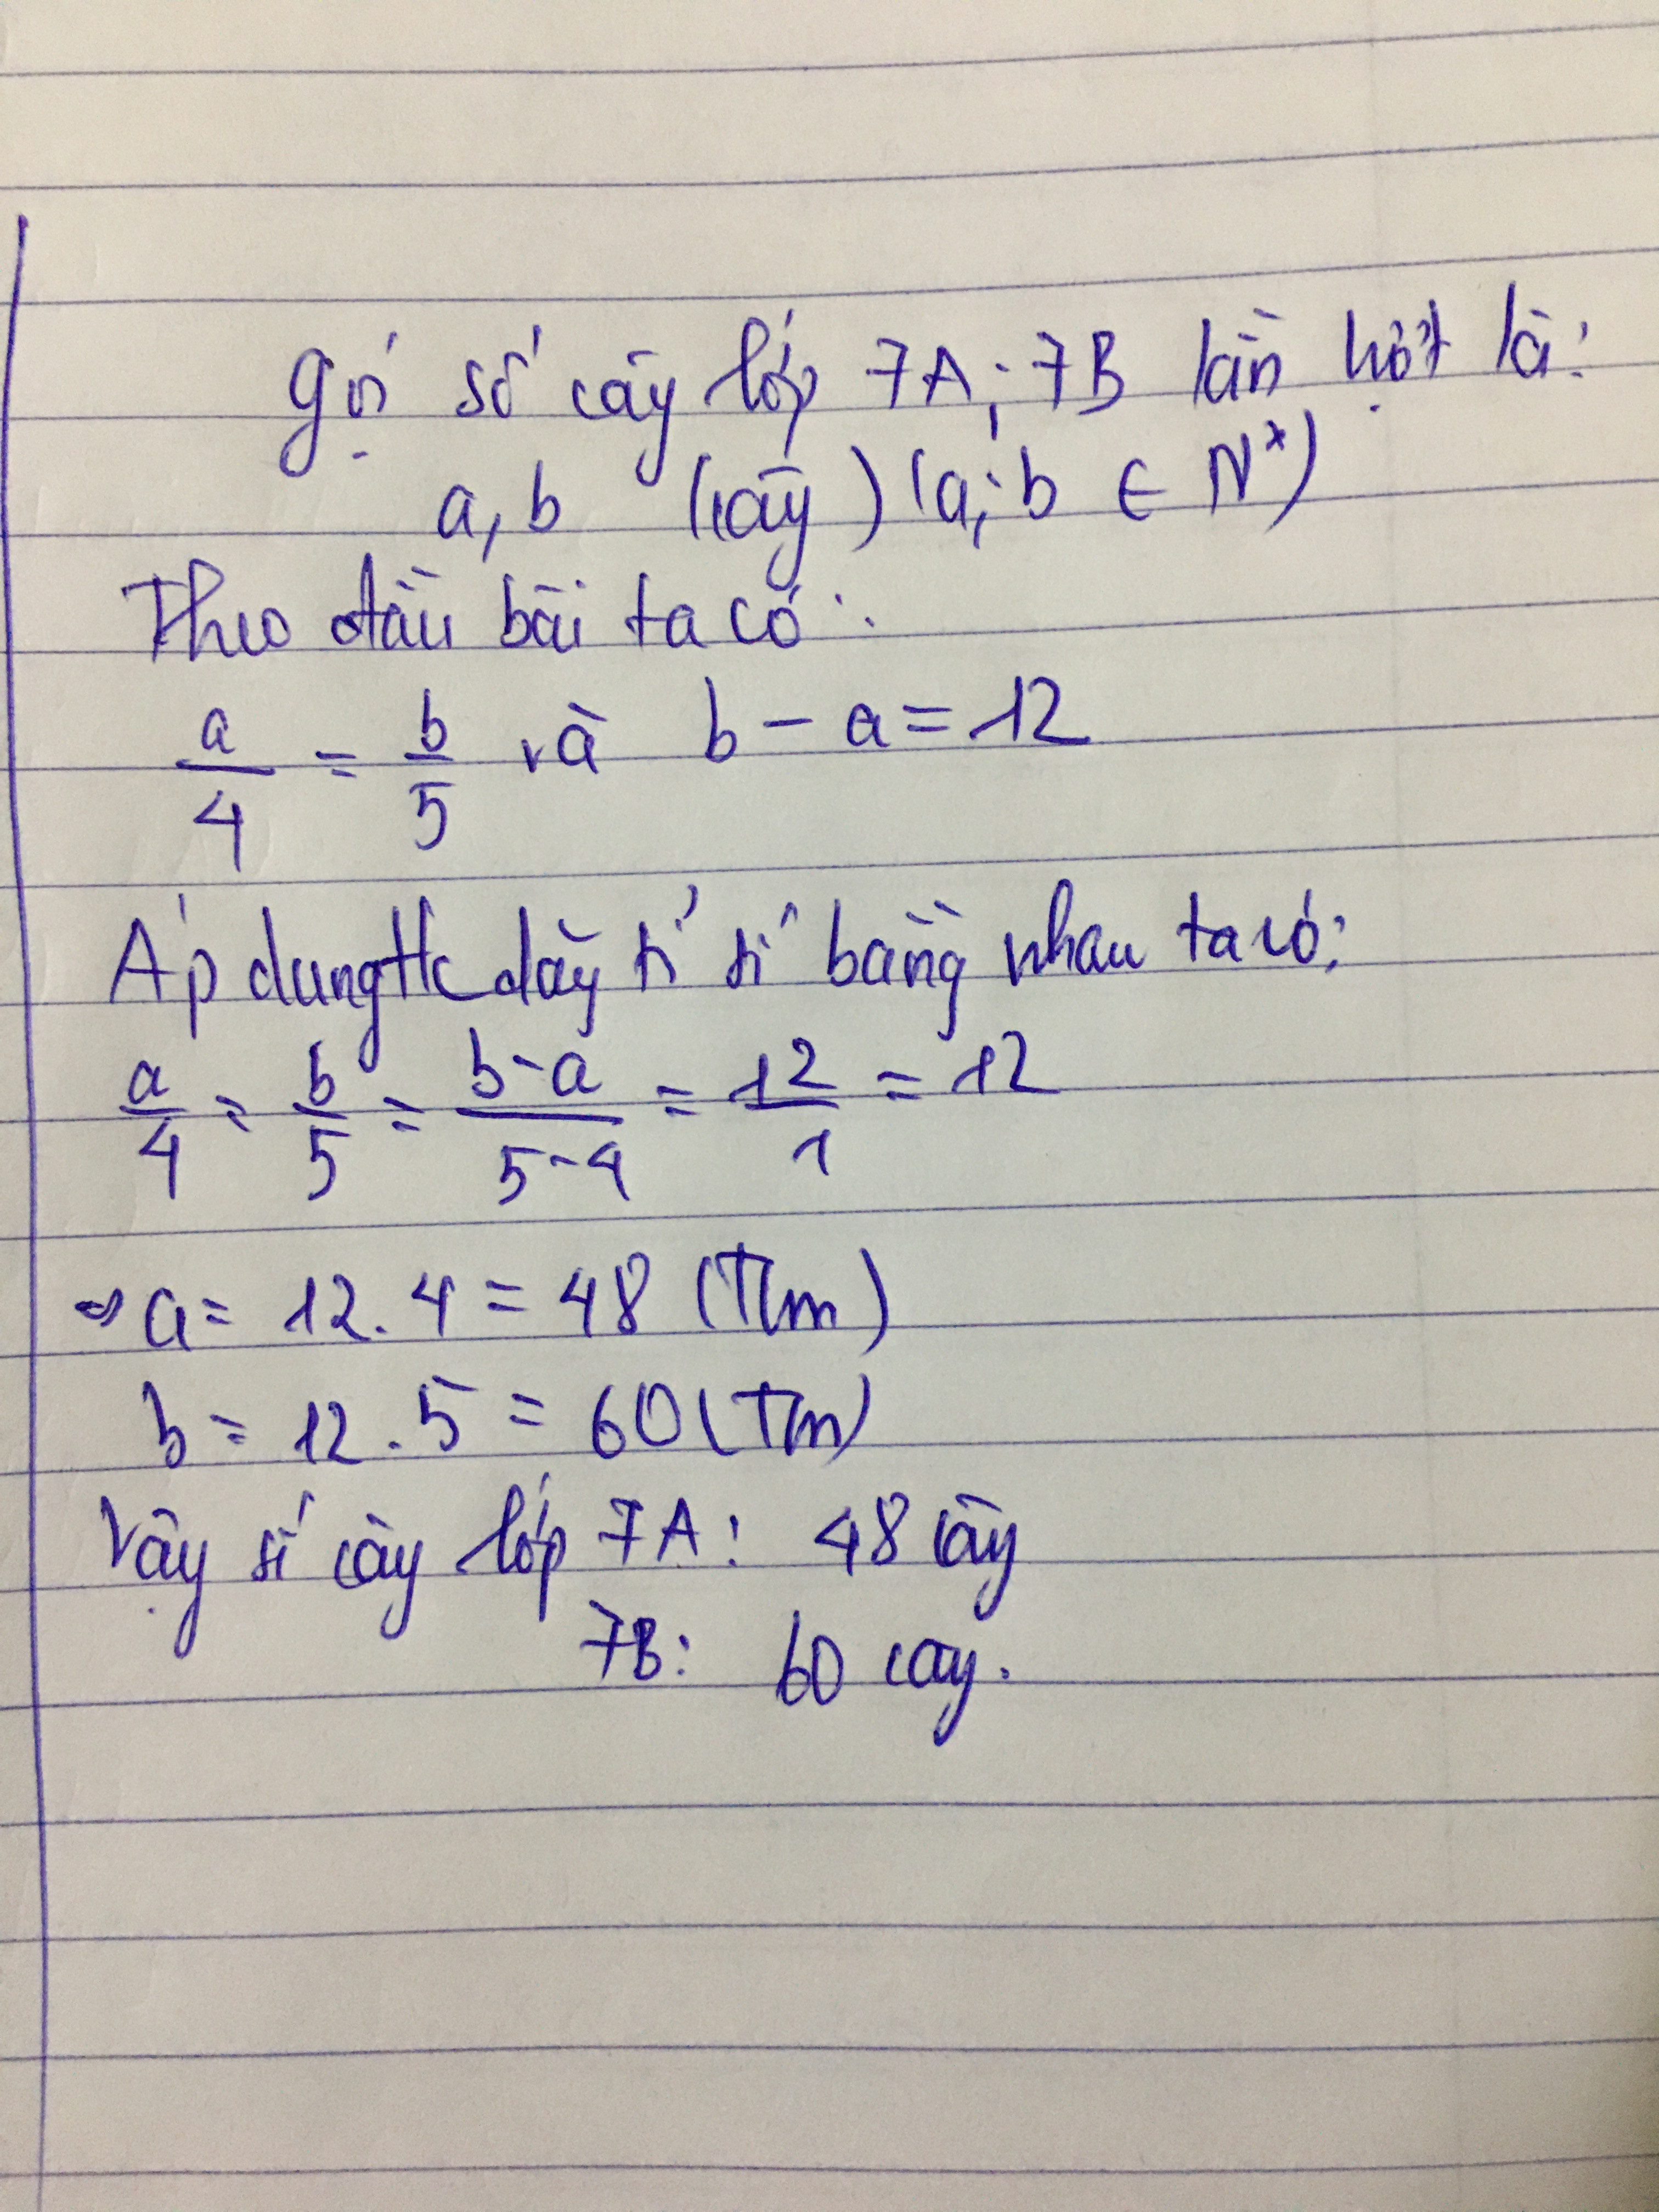 Gọi số cây lớp 7A; 7B lần lượt là:
a, b (cây) (a; b ∈ N*)
Theo đầu bài ta có:
a/4 = b/5 và b - a = 12
Áp dụng tc dãy tỉ số bằng nhau ta có:
a/4 = b/5 = b-a/5-4 = 12/1 = 12
⇒ a = 12.4 = 48 (Tm)
b = 12.5 = 60 (Tm)
Vậy số cây lớp 7A: 48 cây
7B: 60 cây.